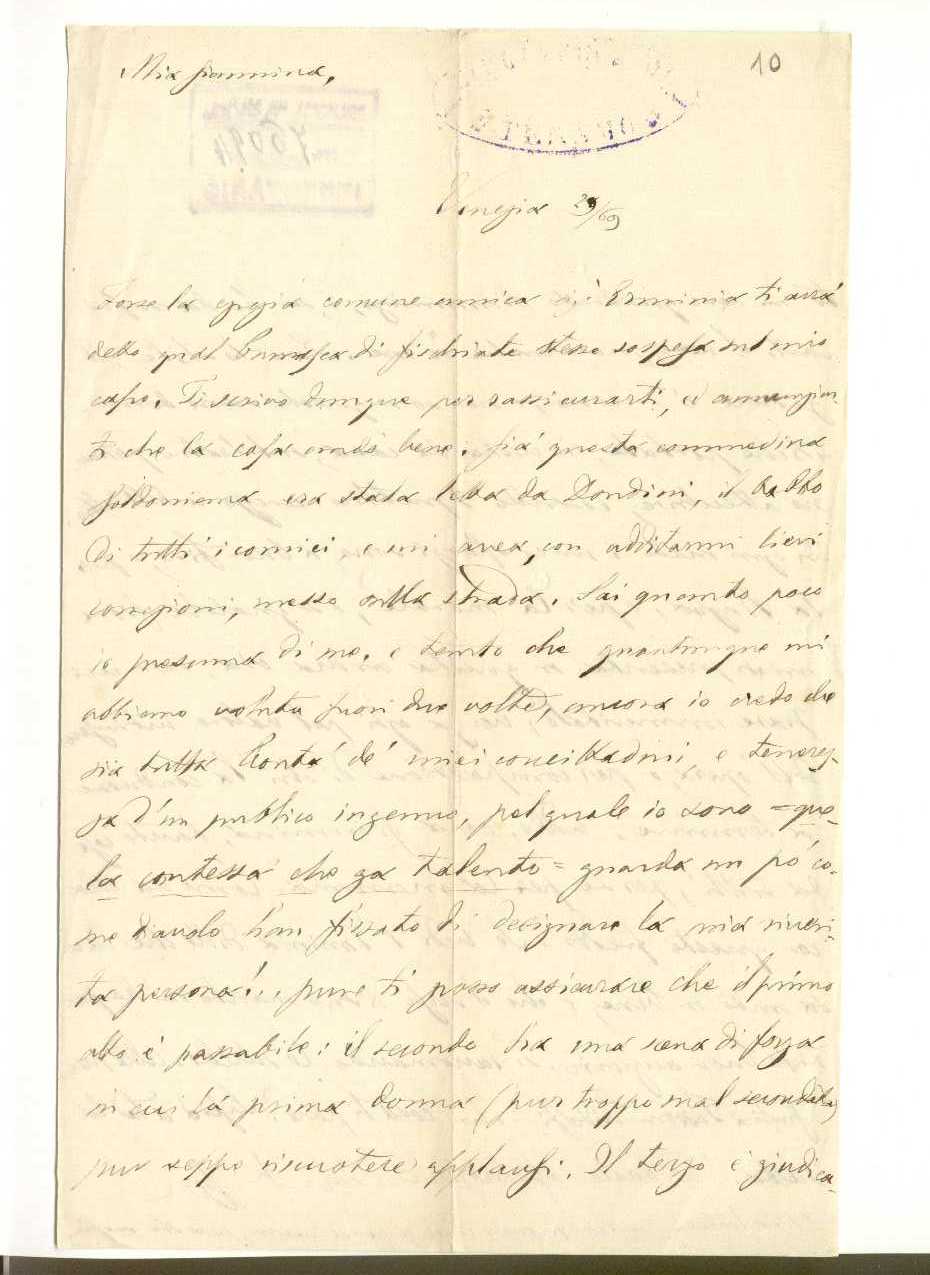 10
Mia Giannina,
Venezia 29/69
Forse la egregia comune amica Erminia ti avrà
detto qual burrasca di fischiate stesse sospesa sul mio
capo. Ti scrivo dunque per rassicurarti, ed annunziar-
ti che la cosa andò bene. Già questa commedina
Goldoniana era stata letta da Dondini, il babbo
di tutti i comici, e mi avea, con additarmi lievi
correzioni, messo sulla strada. Sai quanto poco
io presuma di me, e tanto che quantunque mi
abbiano voluta fuori due volte, ancora io credo che
sia tutta bontà de' miei concittadini, e tenerez-
za d'un publico ingenuo, pel quale io sono = que-
la contessa che ga talento = guarda un pò co-
me diavolo han fissato di designare la mia riveri-
ta persona!.. pure ti posso assicurare che il primo
atto è passabile: il secondo ha una scena di forza
in cui la prima donna (pur troppo mal secondata)
pur seppe riscuotere applausi. Il terzo è giudica-